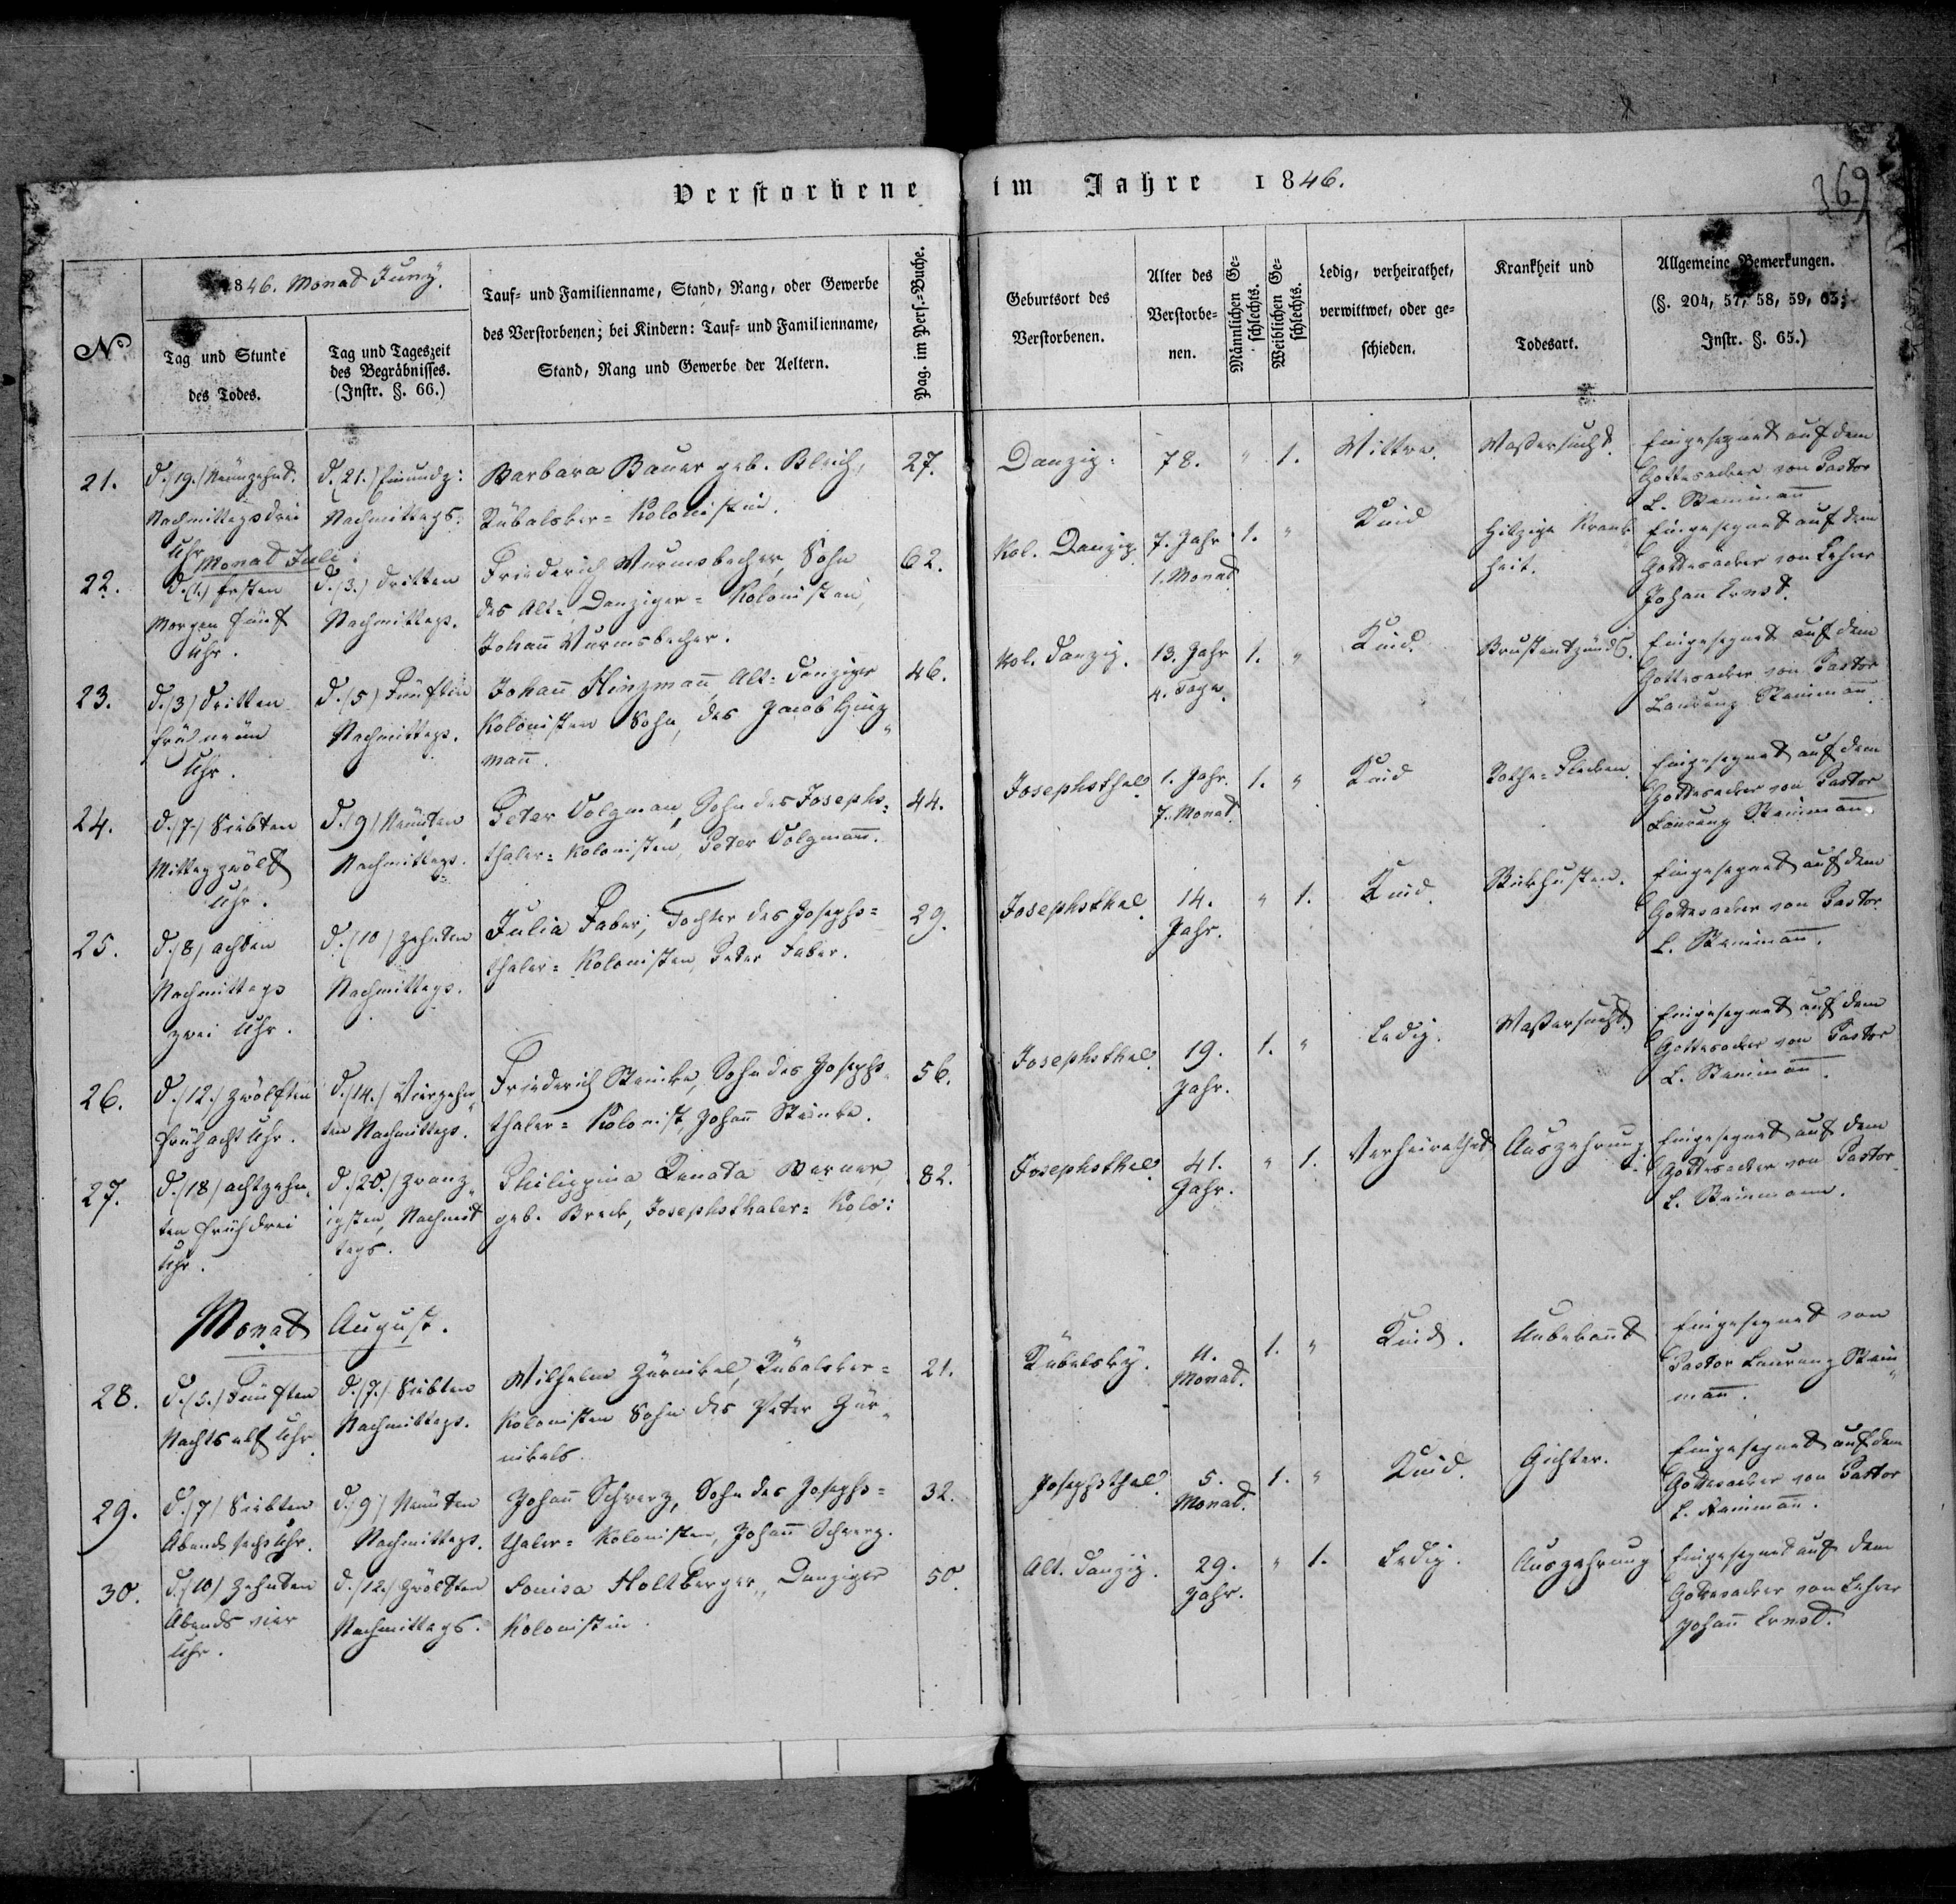 Verstorbene im Jahre 1846.
369
No
1846. Monad Juny.
Tag und Stunde
des Todes.
Tag und Tageszeit
des Begräbnisses.
(Instr. §. 66.)
Tauf- und Familienname, Stand, Rang, oder Gewerbe
des Verstorbenen; bei Kindern: Tauf- und Familienname,
Stand, Rang und Gewerbe der Aeltern.
Pag. im Pers.-Buche.
Geburtsort des
Verstorbenen.
Alter des
Verstorbe-
nen.
Männlichen Ge-
schlechts.
Weiblichen Ge-
schlechts.
Ledig, verheirathet,
verwittwet, oder ge-
schieden.
Krankheit und
Todesart.
Allgemeine Bemerkungen.
(§. 204, 57, 58, 59, 63;
Instr. §. 65.)
21.
d. (19.) Neunzehnt.
Nachmittags drei
Uhr
d. (21.) Einundz:
Nachmittags.
Barbara Bauer geb. Bleich,
Kolonistin.
27.
Danzig.
78.
" 1.
Wittwe.
Waßersucht.
Eingesegnet auf dem
Gottesacker von Pastor
L. Steinmañ
Monad Juli:
22.
d. (1.) Ersten
Morgen fünf
Uhr.
d. (3.) dritten
Nachmittags.
Friederich Wurmsbecher, Sohn
des Alt-Danziger-Kolonisten,
Johañ Wurmsbecher.
62.
Kol. Danzig.
7. Jahr
1. Monad
1. "
Kind
Hitzige Krank
heit.
Eingesegnet auf dem
Gottesacker von Lehrer
Johañ Ernst.
23.
d. (3) dritten
früh neun
Uhr.
d. (5) Fünften
Nachmittags.
Johañ Hinzmañ, Alt-Danziger
Kolonisten Sohn, des Jacob Hinz„
mañ.
46.
Kol. Danzig.
13. Jahr
4. Tage.
1. "
Kind.
Brustentzünd.
Eingesegnet auf dem
Gottesacker von Pastor
Laurenz Steinmañ.
24.
d. (7.) Siebten
Mittag zwölf
Uhr.
d. (9) Neunten
Nachmittags.
Peter Volzman, Sohn des Josephs-
thaler-Kolonisten, Peter Volzmañ.
44.
Josephsthal
1. Jahr.
7. Monad.
1. "
Kind
Rothe-Flecken.
Eingesegnet auf dem
Gottesacker von Pastor
Laurenz Steinmañ.
25.
d. (8) achten
Nachmittags
zwei Uhr.
d. (10) zehnten
Nachmittags.
Julia Faber, Tochter des Josephs-
thaler-Kolonisten, Peter Faber.
29.
Josephsthal
14.
Jahr.
" 1.
Kind.
Stickhusten.
Eingesegnet auf dem
Gottesacker von Pastor
L. Steinmañ.
26.
d. (12.) zwölften
früh acht Uhr.
d. (14.) Vierzehn„
ten Nachmittags.
Friederich Steinke, Sohn des Josephs
thaler-Kolonist Johañ Steinke.
56.
Josephsthal
19.
Jahr.
1. "
Ledig.
Waßersucht.
Eingesegnet auf dem
Gottesacker von Pastor
L. Steinmañ.
27.
d. (18) achtzehn„
ten früh drei
Uhr.
d. (20.) zwanz„
igsten, Nachmit
tags.
Philippina Renata Werner,
geb. Breck, Josephsthaler-Kolo:
82.
Josephsthal
41.
Jahr.
" 1.
Verheirathet
Auszehrung.
Eingesegnet auf dem
Gottesacker von Pastor
L. Steinmann.
Monad August.
28.
d. (5.) Fünften
Nachts elf Uhr.
d. (7.) Siebten
Nachmittags.
Wilhelm Zürnikel,
Kolonisten Sohn des Peter Zür„
nikels.
21.
Monad.
1. "
Kind.
Unbekañt
Eingesegnet von
Pastor Laurenz Stein„
mañ.
29.
d. (7) Siebten
Abends sechs Uhr.
d. (9) Neunten
Nachmittags.
Johañ Schwerz, Sohn des Josephs-
thaler-Kolonisten, Johañ Schwerz.
32.
Josephsthal.
5.
Monad.
1. "
Kind.
Gichter.
Eingesegnet auf dem
Gottesacker von Pastor
L. Steinmañ.
30.
d. (10) Zehnten
Abends vier
Uhr.
d. (12.) Zwölften
Nachmittags.
Louisa Holtzberger, Danziger
Kolonistin.
50.
Alt. Danzig.
29.
Jahr.
" 1.
Ledig.
Auszehrung
Eingesegnet auf dem
Gottesacker von Lehrer
Johañ Ernst.